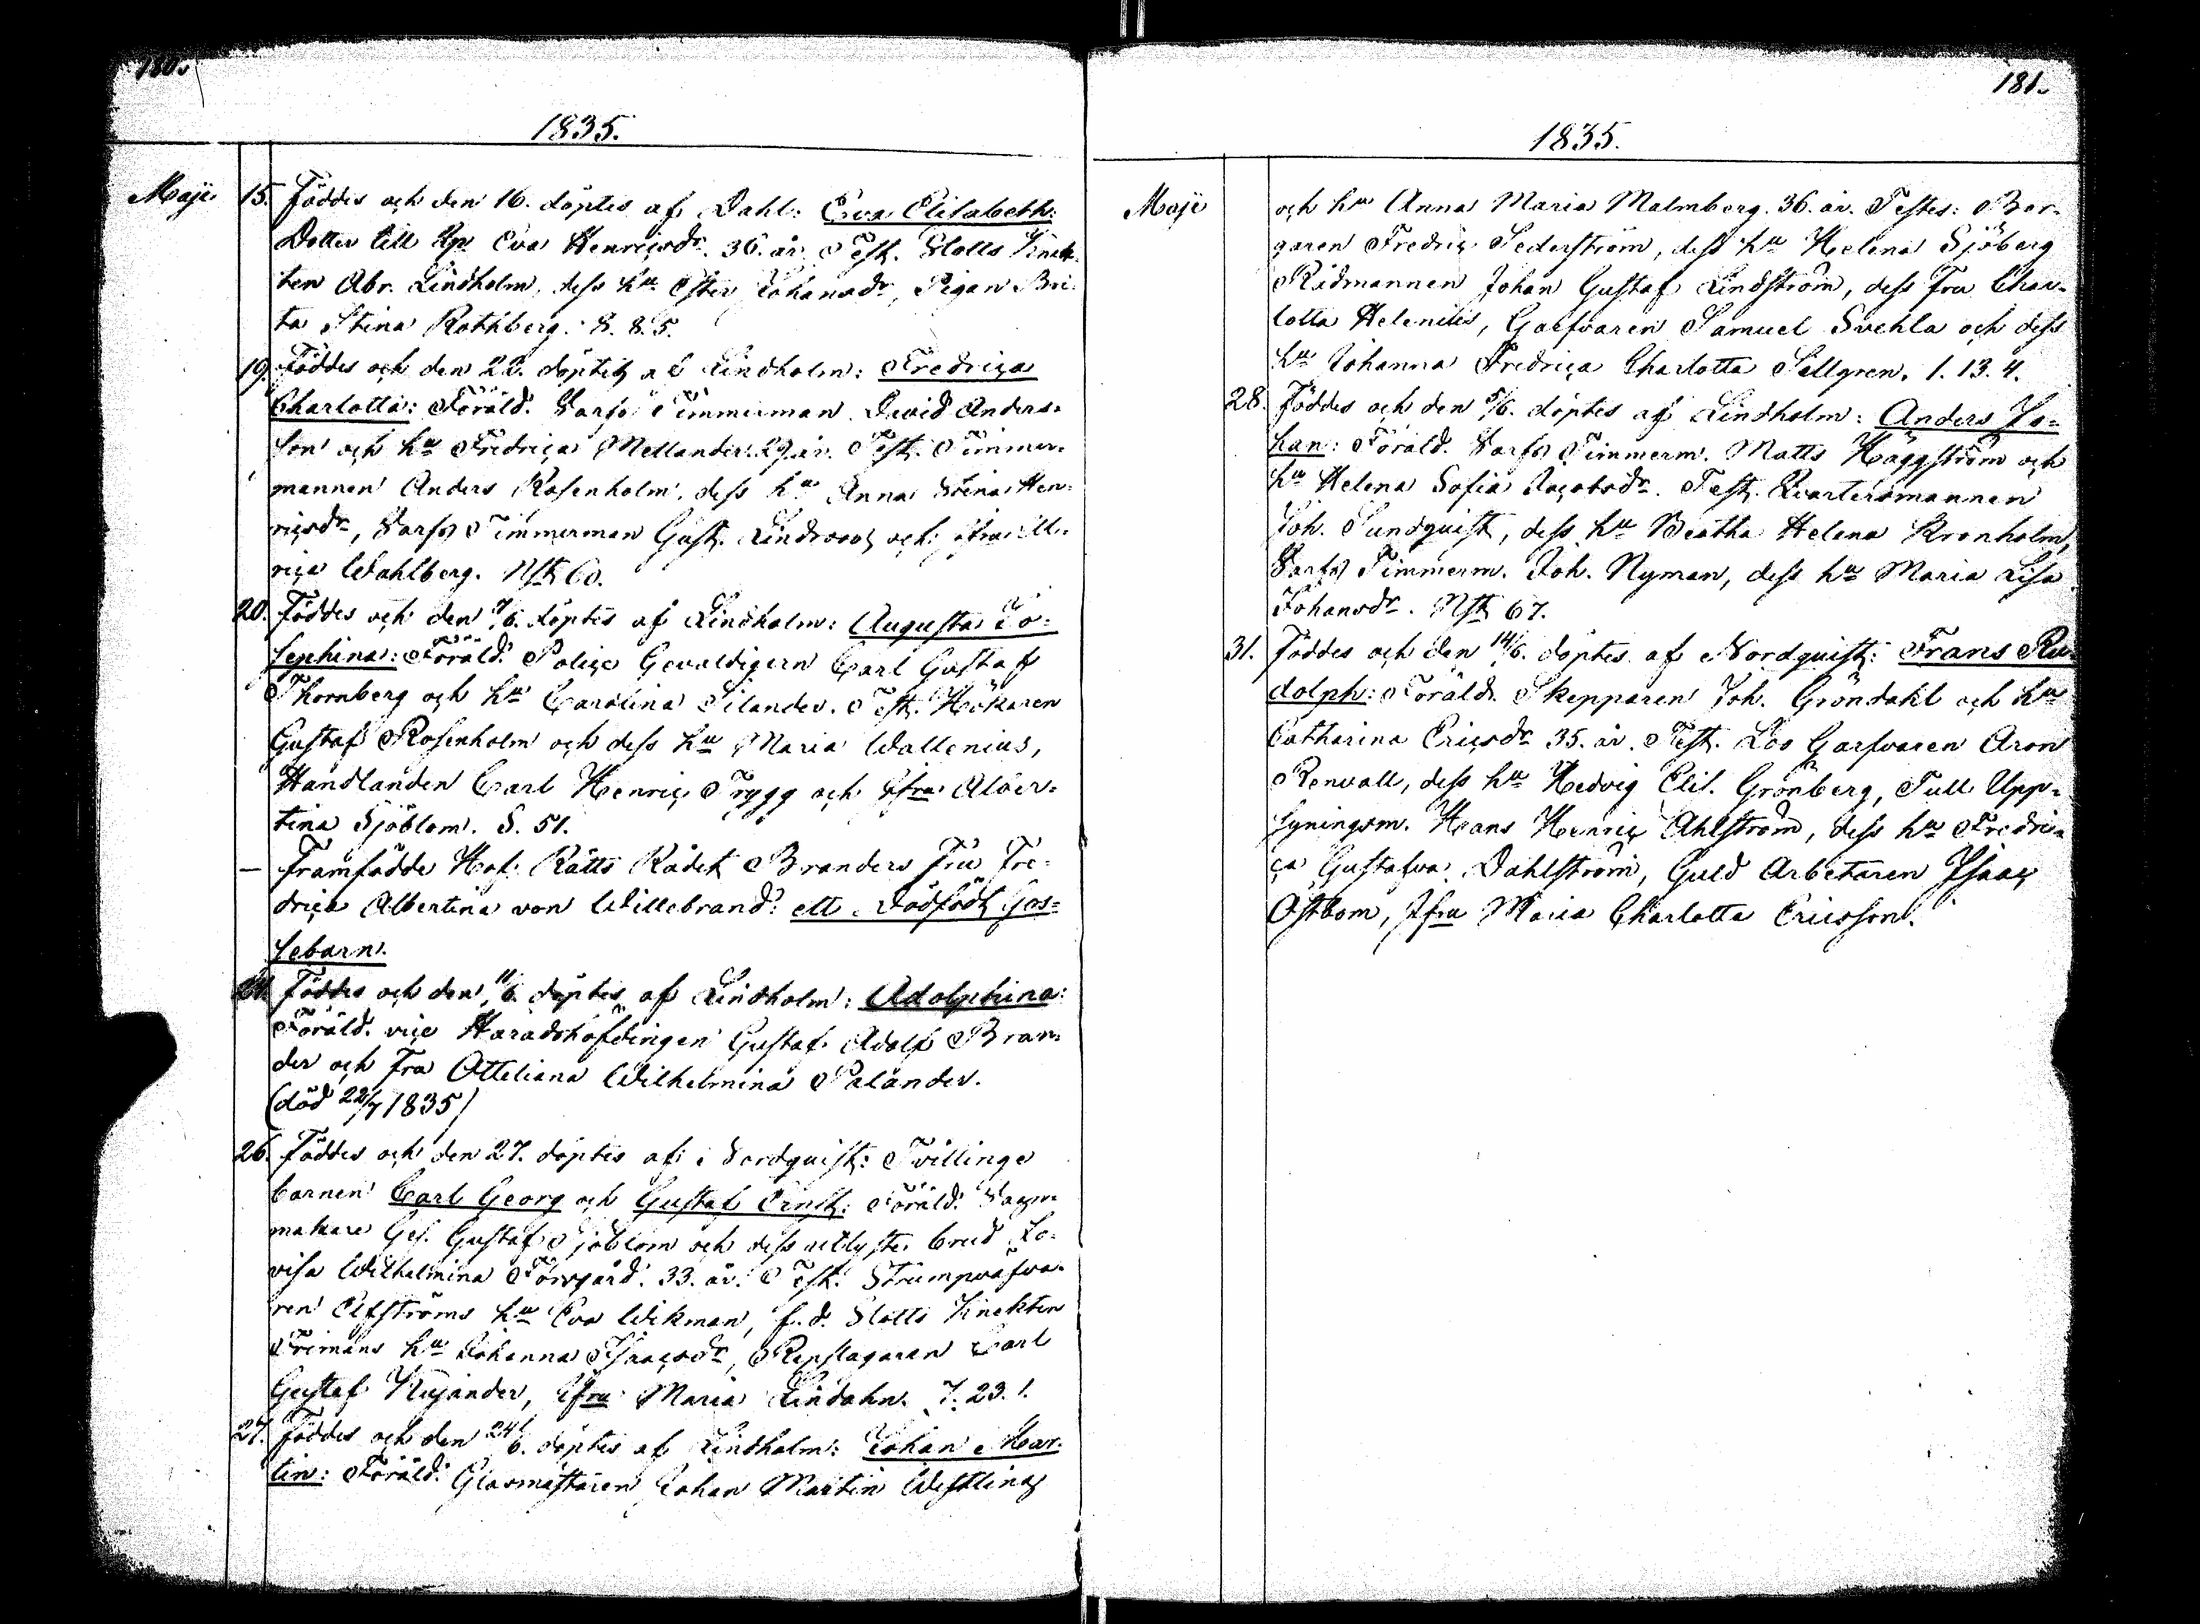 180.
1835.
Maji 15. Föddes och den 16. döptes af Dahl: Eva Elisabeth:
Dotter till Kp. Eva Henricsdr. 36. år. Test. Slotts Knek-
ten Abr. Lindholm, dess hu Ester Johansdr, Pigan Bri-
ta Stina Rothberg. 8. 8. 5.
19. Föddes och den 22. döptes af Lindholm: Fredrica
Charlotta: Föräld. Varfs Timmerman David Anders-
son och hu Fredrica Mellander. 29. år. Test. Timmer-
mannen Anders Rosenholm, dess hu Anna Stina Hen-
ricsdr, Varfs Timmerman Gust. Lindroos och Ul-
rica Wahlberg. Nst 60.
20. Föddes och den 7/6. döptes af Lindholm: Augusta Jo-
sephina: Föräld. Police Gevaldigern Carl Gustaf
Thornberg och hu Carolina Silander. Test. Hökaren
Gustaf Rosenholm och dess hu Maria Wallenius,
Handlanden Carl Henric Trygg och Jfru Alber-
tina Sjöblom. S. 51.
— Framfödde Hof Rätts Rådet Branders Fru Fre-
drica Albertina von Willebrand: ett Dödfödt Gos-
sebarn.
24. Föddes och den 11/6. döptes af Lindholm: Adolphina:
Föräld. vice Häradshöfdingen Gustaf Adolf Bran-
der och Fru Otteliana Wilhelmina Palander.
(död 22/7 1835)
26. Föddes och den 27. döptes af Nordquist: Tvillinge
barnen Carl Georg och Gustaf Ernst: Föräld. Vagn-
makare Ges. Gustaf Sjöblom och dess utlyste brud Lo-
visa Wilhelmina Forsgård. 33. år. Test. Strumpväfva-
ren Elfströms hu Eva Wikman, f. d. Slotts Knekten
Frimans hu Johanna Isaacsdr, Repslagaren Carl
Gustaf Kujander, Jfru Maria Lindahn. 7. 23. 1.
27. Föddes och den 24/6. döptes af Lindholm: Johan Mar-
tin: Föräld. Glasmästaren Johan Martin Westling
181.
1835.
Maji och hu Anna Maria Malmberg. 36. år. Testes: Bor-
garen Fredric Sederström, dess hu Helena Sjöberg
Rådmannen Johan Gustaf Lindström, dess Fru Char-
lotta Helenius, Garfvaren Samuel Svehla och dess
hu Johanna Fredrica Charlotta Sellgren. 1. 13. 4.
28. Föddes och den 5/6. döptes af Lindholm: Anders Jo-
han: Föräld. Varfs Timmerm. Matts Häggström och
hu Helena Sofia Jacobsdr. Test. Qvartersmannen
Joh. Sundquist, dess hu Beatha Helena Kronholm,
Varfs Timmerm. Joh. Nyman, dess hu Maria Lisa
Johansdr. Nst 67.
31. Föddes och den 14/6. döptes af Nordquist: Frans Ru-
dolph: Föräld. Skepparen Joh. Gröndahl och hu
Catharina Ericsdr 35. år. Test. Loo Garfvaren Aron
Renvall, dess hu Hedvig Elis. Grönberg, Tull Upp-
syningsm. Hans Henric Ahlström, dess hu Fredri-
ca Gustafva Dahlström, Guld Arbetaren Isaac
Östbom, Jfru Maria Charlotta Ericsson.